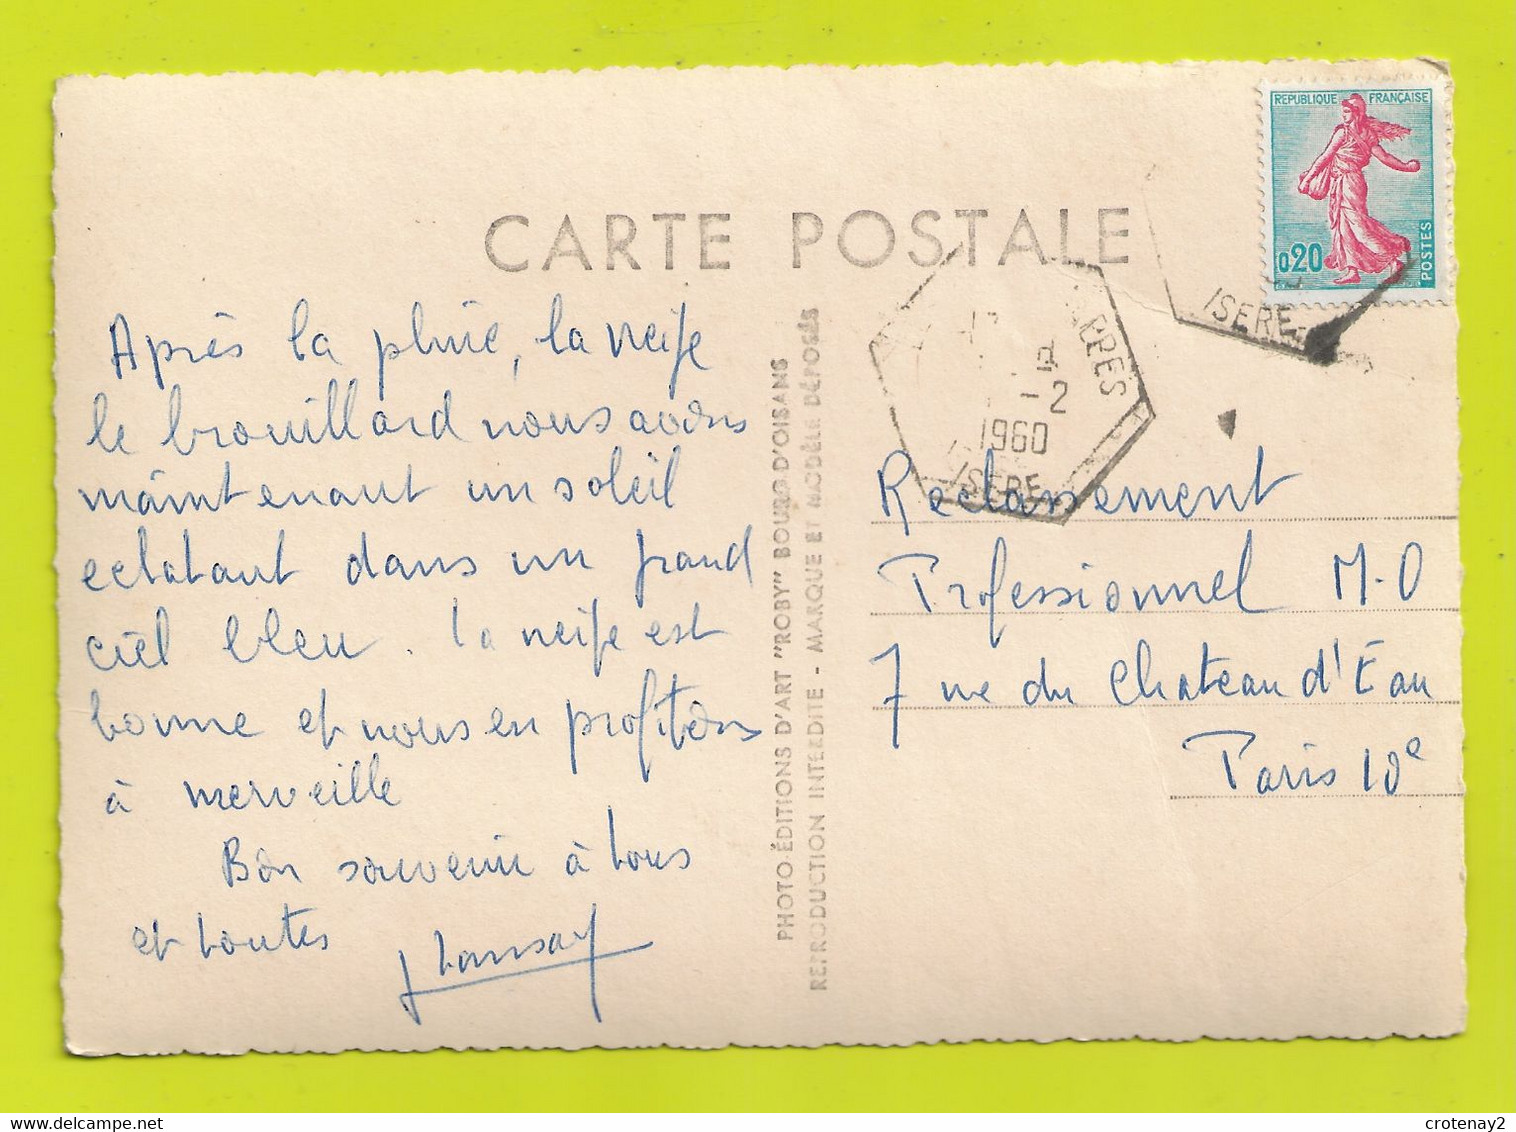 CARTE POSTALE
REPUBLIQUE FRANÇAISE
0,20
POSTES
ISERE
1960
-2
ISERE
Après la pluie, la neige
le brouillard nous avons
maintenant un soleil
eclatant dans un grand
ciel bleu. la neige est
bonne et nous en profitons
à merveille
Bon souvenir à tous
et toutes
PHOTO-ÉDITIONS D'ART "ROBY" BOURG-D'OISANS
REPRODUCTION INTERDITE - MARQUE ET MODÈLE DÉPOSÉS
Reclassement
Professionnel M.O
7 rue du Chateau d'Eau
Paris 10e
crotenay2